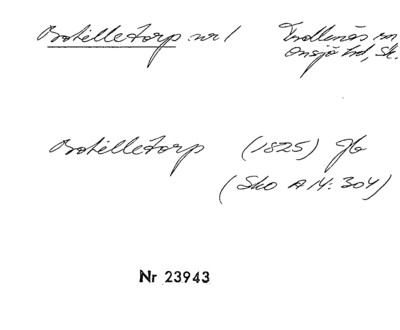 Bohilletorp nr 1
Trollenäs sn
Onsjö hd, Sk.
Bohilletorp (1825) Jb
(Sko A 14: 304)
Nr 23943